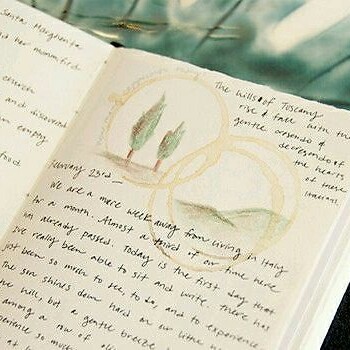 Santa Margherita
her mom first
church
and discovered
an empty
food
The hills of Tuscany
rise & fall with the
gentle cresendo &
decresendo of
the hearts
of these
Italians.
February 23rd
We are a mere week away from living in Italy
for a month. Almost a third of our time here
has already passed. Today is the first day that
I've really been able to sit and write. There has
just been so much to see, to do, and to experience
The sun shines down hard on our little
hill, but a gentle breeze
among a row of olive
so much
at